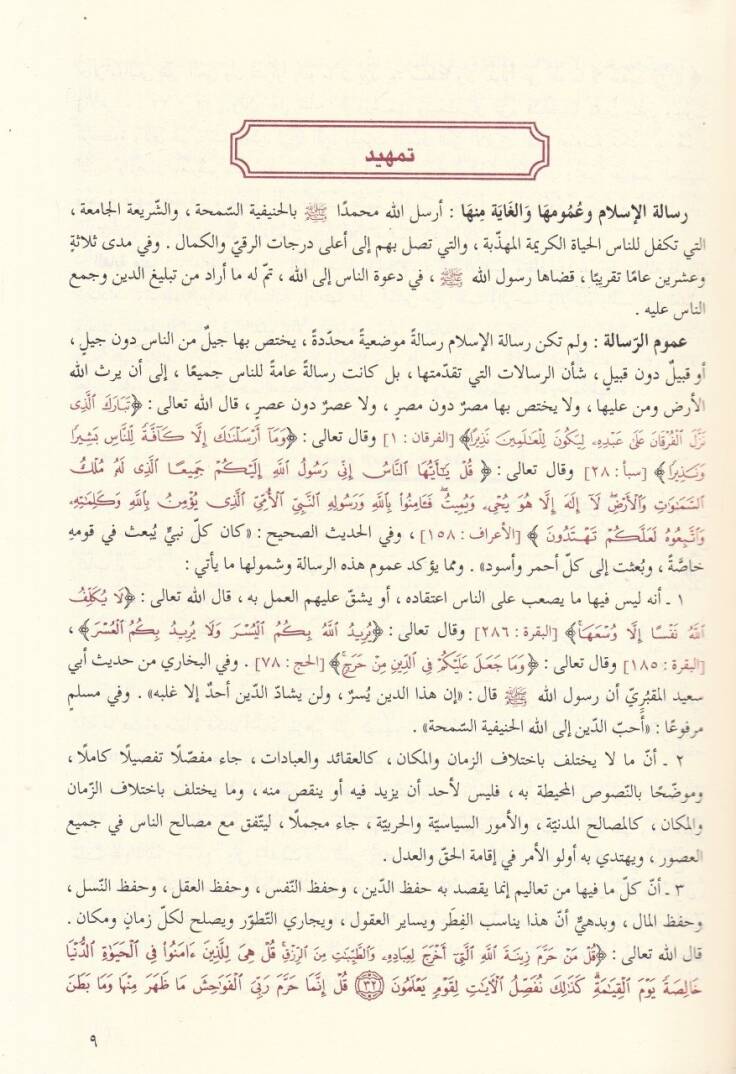 تمهيد
رسالة الإسلام وعُمُومهَا وَالغَايَة مِنهَا : أرسل الله محمدًا ﷺ بالحنيفية السّمحة ، والشّريعة الجامعة ،
التي تكفل للناس الحياة الكريمة المهذّبة ، والتي تصل بهم إلى أعلى درجات الرقيّ والكمال . وفي مدى ثلاثةٍ
وعشرين عامًا تقريبًا ، قضاها رسول الله ﷺ ، في دعوة الناس إلى الله ، تمّ له ما أراد من تبليغ الدين وجمع
الناس عليه .
عموم الرّسالة : ولم تكن رسالة الإسلام رسالةً موضعيةً محدّدةً ، يختص بها جيلٌ من الناس دون جيلٍ ،
أو قبيلٌ دون قبيلٍ ، شأن الرسالات التي تقدّمتها ، بل كانت رسالةً عامةً للناس جميعًا ، إلى أن يرث الله
الأرض ومن عليها ، ولا يختص بها مصرٌ دون مصرٍ ، ولا عصرٌ دون عصرٍ ، قال الله تعالى : ﴿تَبَارَكَ ٱلَّذِى
نَزَّلَ ٱلْفُرْقَانَ عَلَىٰ عَبْدِهِۦ لِيَكُونَ لِلْعَـٰلَمِينَ نَذِيرًا﴾ [الفرقان : ١] وقال تعالى : ﴿وَمَآ أَرْسَلْنَـٰكَ إِلَّا كَآفَّةً لِّلنَّاسِ بَشِيرًا
وَنَذِيرًا﴾ [سبأ : ٢٨] وقال تعالى : ﴿ قُلْ يَـٰٓأَيُّهَا ٱلنَّاسُ إِنِّى رَسُولُ ٱللَّهِ إِلَيْكُمْ جَمِيعًا ٱلَّذِى لَهُۥ مُلْكُ
ٱلسَّمَـٰوَٰتِ وَٱلْأَرْضِ ۖ لَآ إِلَـٰهَ إِلَّا هُوَ يُحْىِۦ وَيُمِيتُ ۖ فَـَٔامِنُوا۟ بِٱللَّهِ وَرَسُولِهِ ٱلنَّبِىِّ ٱلْأُمِّىِّ ٱلَّذِى يُؤْمِنُ بِٱللَّهِ وَكَلِمَـٰتِهِۦ
وَٱتَّبِعُوهُ لَعَلَّكُمْ تَهْتَدُونَ ﴾ [الأعراف : ١٥٨] ، وفي الحديث الصحيح : «كان كلّ نبيٍّ يُبعث في قومهِ
خاصَّةً ، وبُعثت إلى كلّ أحمر وأسود» . ومما يؤكد عموم هذه الرسالة وشمولها ما يأتي :
١ ـ أنه ليس فيها ما يصعب على الناس اعتقاده ، أو يشقّ عليهم العمل به ، قال الله تعالى : ﴿لَا يُكَلِّفُ
ٱللَّهُ نَفْسًا إِلَّا وُسْعَهَا ۚ﴾ [البقرة : ٢٨٦] وقال تعالى : ﴿يُرِيدُ ٱللَّهُ بِكُمُ ٱلْيُسْرَ وَلَا يُرِيدُ بِكُمُ ٱلْعُسْرَ﴾ ،
[البقرة : ١٨٥] وقال تعالى : ﴿وَمَا جَعَلَ عَلَيْكُمْ فِى ٱلدِّينِ مِنْ حَرَجٍ ۚ﴾ [الحج : ٧٨] . وفي البخاري من حديث أبي
سعيد المقبُريّ أن رسول الله ﷺ قال : «إن هذا الدين يُسرٌ ، ولن يشادّ الدّين أحدٌ إلا غلبه» . وفي مسلمٍ
مرفوعًا : «أَحبّ الدّين إلى الله الحنيفية السّمحة» .
٢ ـ أنّ ما لا يختلف باختلاف الزمان والمكان ، كالعقائد والعبادات ، جاء مفصّلًا تفصيلًا كاملًا ،
وموضّحًا بالنّصوص المحيطة به ، فليس لأحد أن يزيد فيه أو ينقص منه ، وما يختلف باختلاف الزّمان
والمكان ، كالمصالح المدنيّة ، والأمور السياسيّة والحربيّة ، جاء مجملًا ، ليتّفق مع مصالح الناس في جميع
العصور ، ويهتدي به أولو الأمر في إقامة الحقّ والعدل .
٣ ـ أنّ كلّ ما فيها من تعاليم إنما يقصد به حفظ الدّين ، وحفظ النّفس ، وحفظ العقل ، وحفظ النّسل ،
وحفظ المال ، وبدهيٌّ أن هذا يناسب الفِطَر ويساير العقول ، ويجاري التّطوّر ويصلح لكلّ زمانٍ ومكان .
قال الله تعالى : ﴿قُلْ مَنْ حَرَّمَ زِينَةَ ٱللَّهِ ٱلَّتِىٓ أَخْرَجَ لِعِبَادِهِۦ وَٱلطَّيِّبَـٰتِ مِنَ ٱلرِّزْقِ ۚ قُلْ هِىَ لِلَّذِينَ ءَامَنُوا۟ فِى ٱلْحَيَوٰةِ ٱلدُّنْيَا
خَالِصَةً يَوْمَ ٱلْقِيَـٰمَةِ ۗ كَذَٰلِكَ نُفَصِّلُ ٱلْـَٔايَـٰتِ لِقَوْمٍ يَعْلَمُونَ ﴿٣٢﴾ قُلْ إِنَّمَا حَرَّمَ رَبِّىَ ٱلْفَوَٰحِشَ مَا ظَهَرَ مِنْهَا وَمَا بَطَنَ
٩